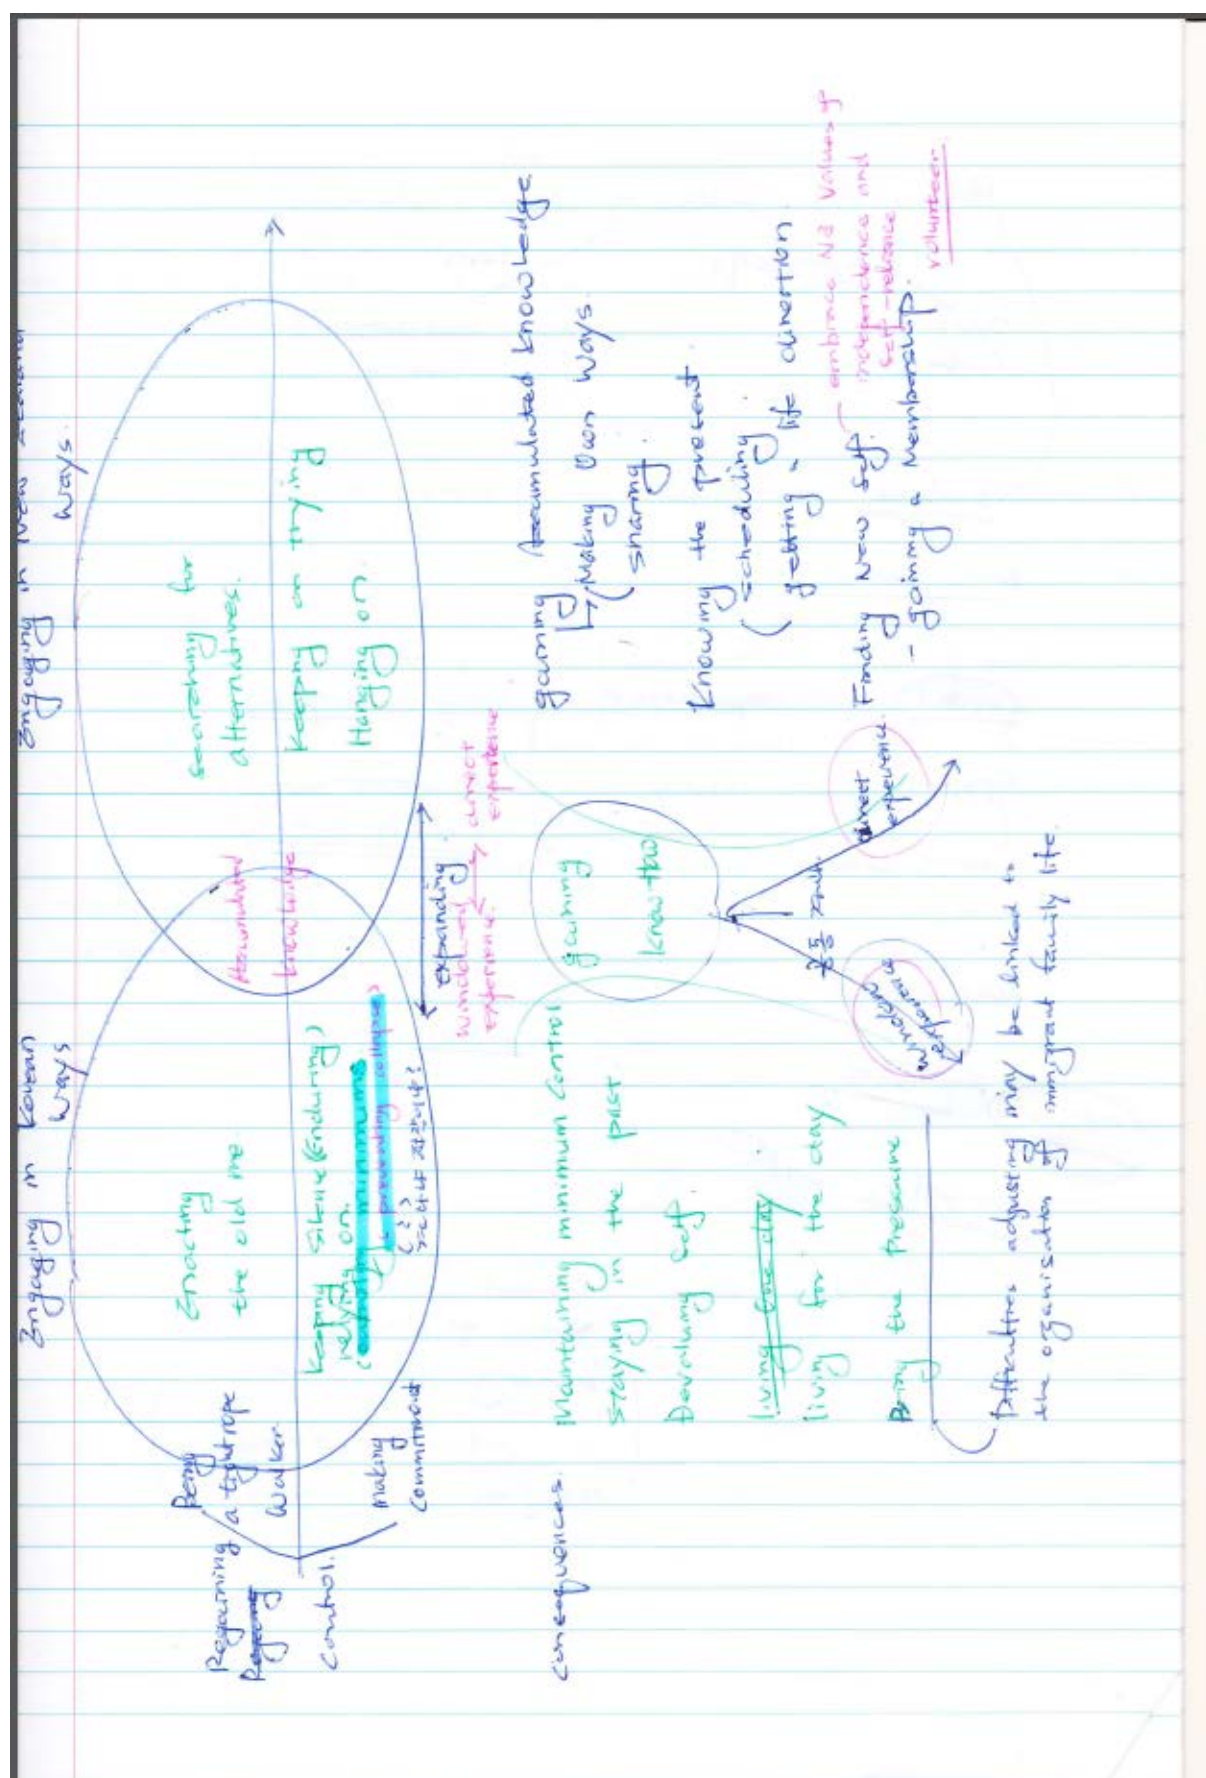 Engaging in Korean
ways
Engaging in New Zealand
ways.
Regaining
Control.
Being
a tightrope
walker
Making
commitment
Enacting
the old me
Keeping silence (Enduring)
relying on.
minimums
preventing collapse)
(?)
Accumulated
knowledge
searching for
alternatives.
Keeping on trying
Hanging on.
expanding
direct
experience
experience.
consequences.
Maintaining minimum control
staying in the past
Devaluing self.
living one day
living for the day
Being the pressure
Difficulties adjusting may be linked to
the organisation of immigrant family life.
gaining
know how
experience
direct
experience.
gaining Accumulated knowledge
Making own ways.
sharing.
Knowing the present
scheduling
getting a life direction
Finding New self.
- gaining a Membership.
embrace NZ values of
independence and
self-reliance
volunteer